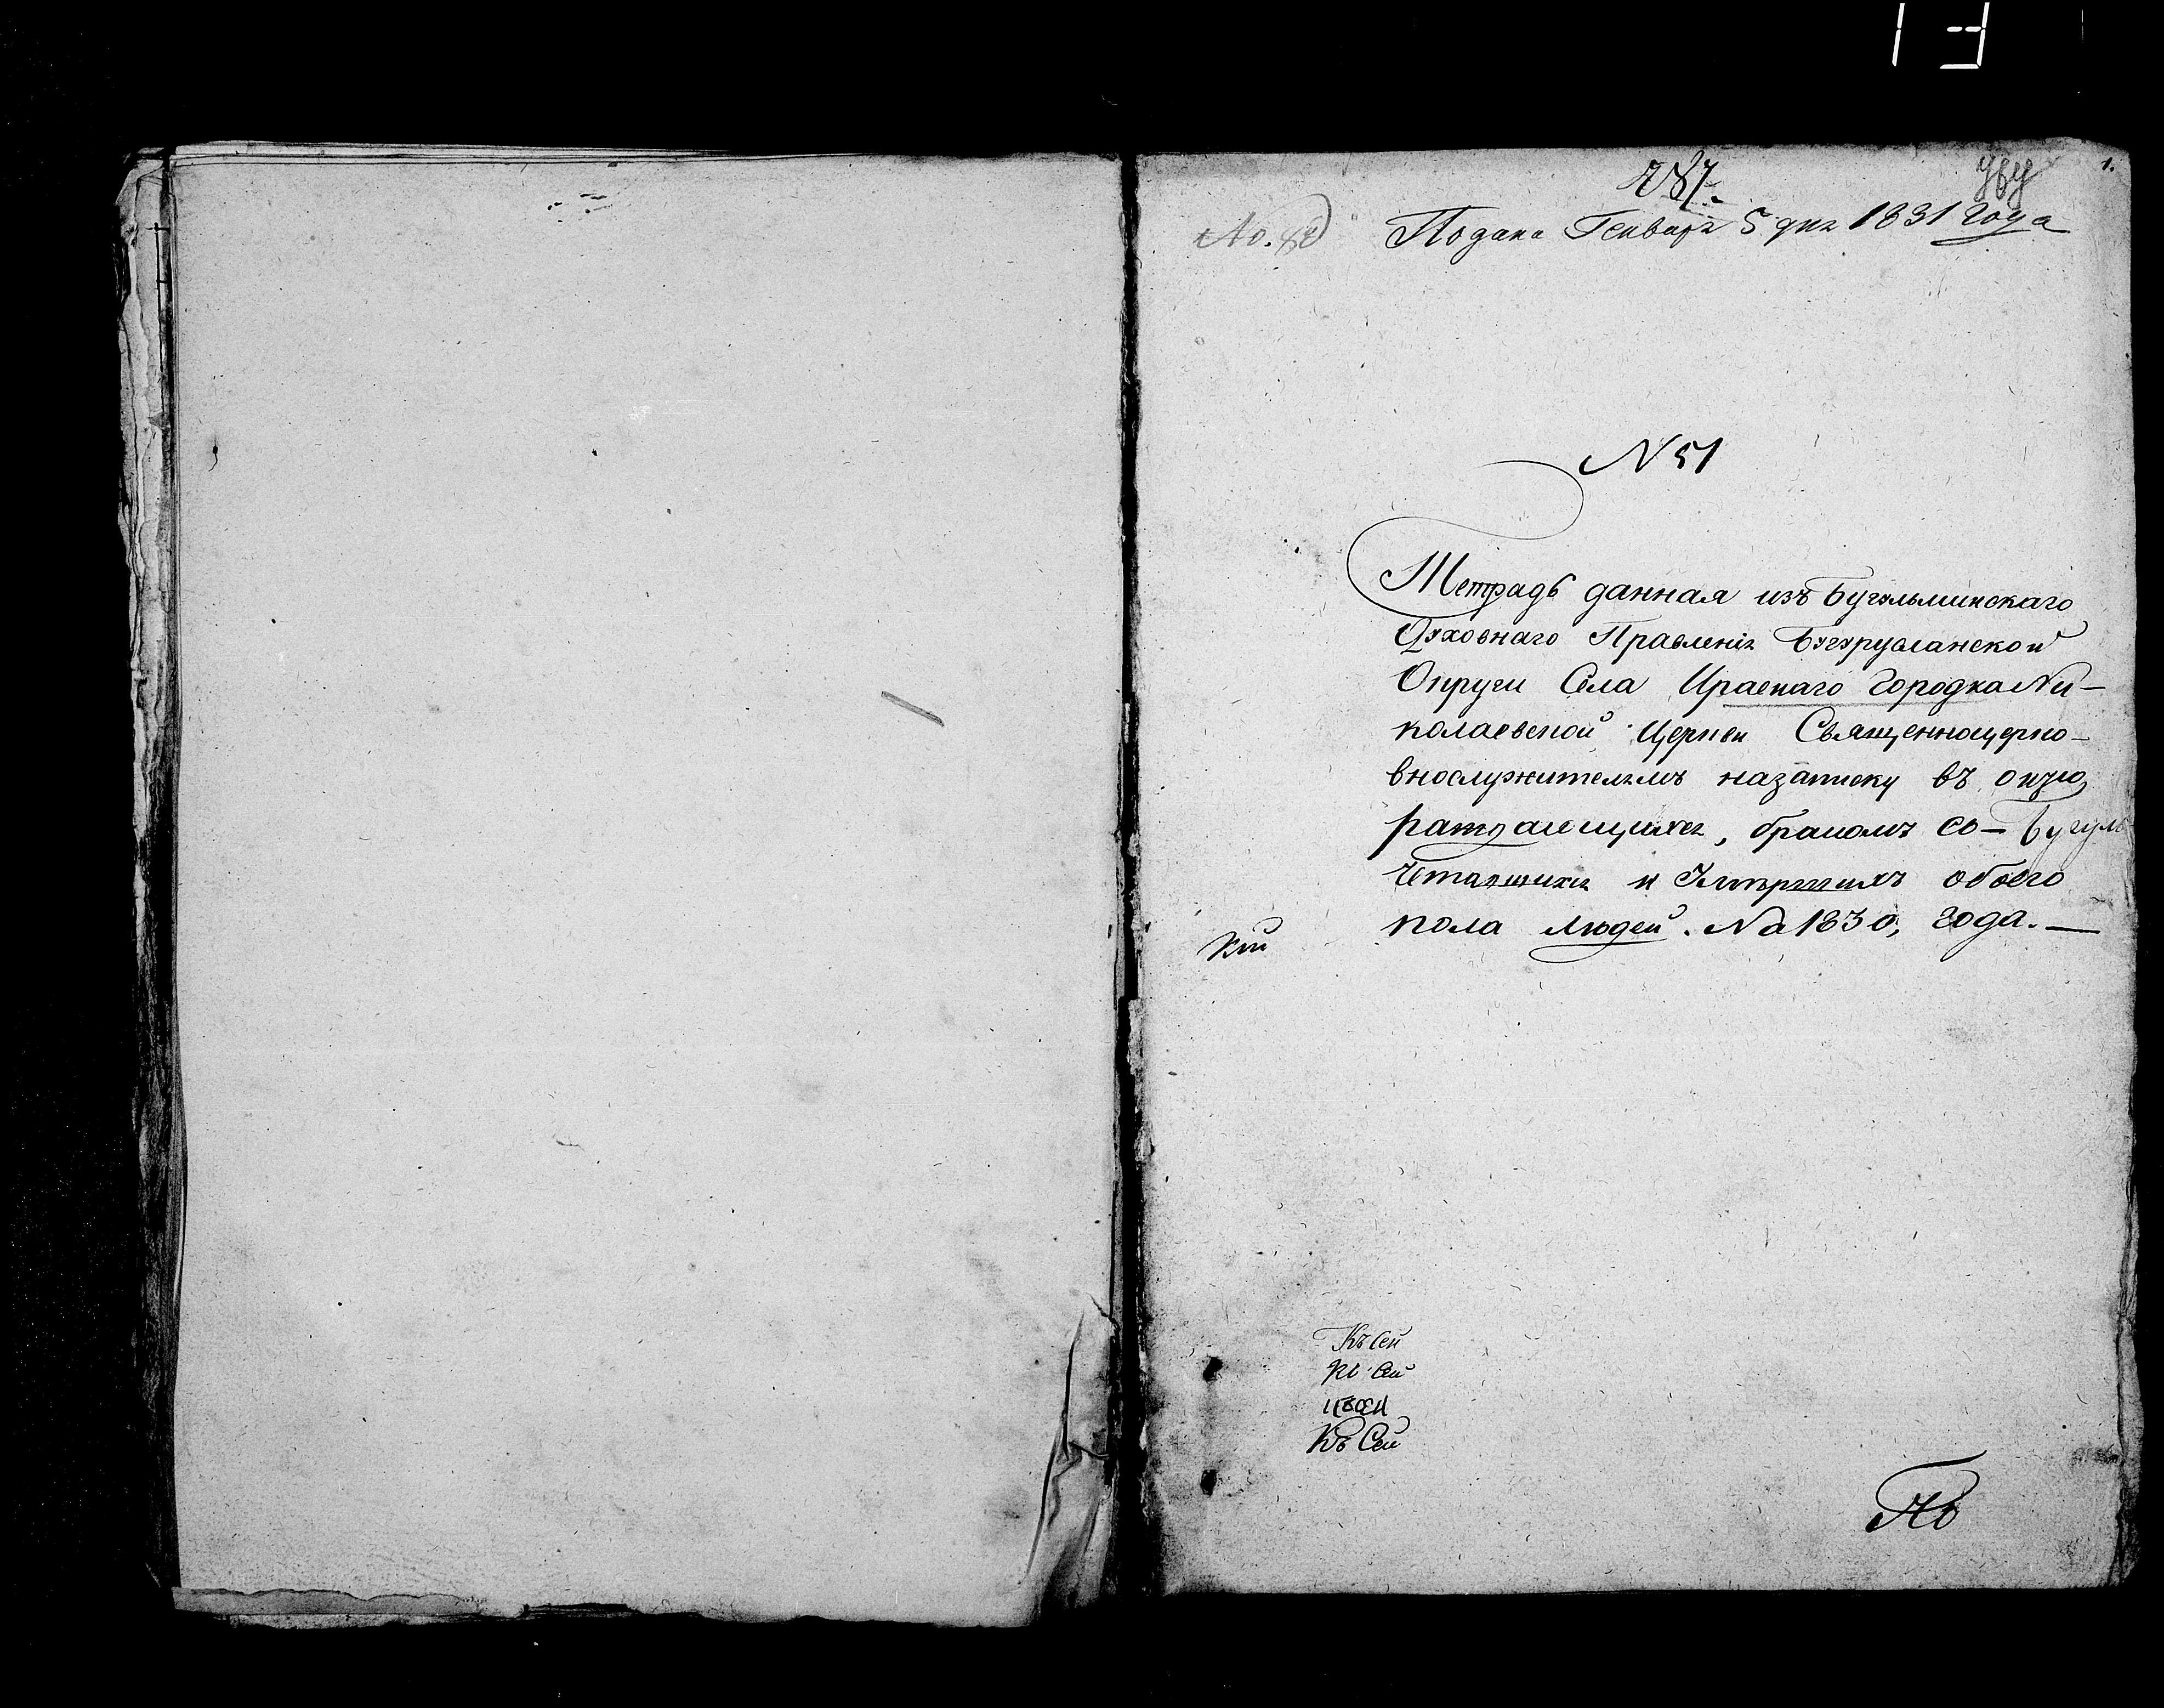 787.
1.
Подана Генваря 5 дня 1831 года
N 51
Тетрадь данная изъ Бугульминскаго
Духовнаго Правленія Бугурусланской
Округи Села Городка Ни-
колаевской Церкви Священноцерко-
внослужителямъ назаписку въ оную
раждающихся, бракомъ со-
четавшихся и Умершихъ обоего
пола людей. На 1830, года. —
Къ Сей
Къ Сей
Къ Сей